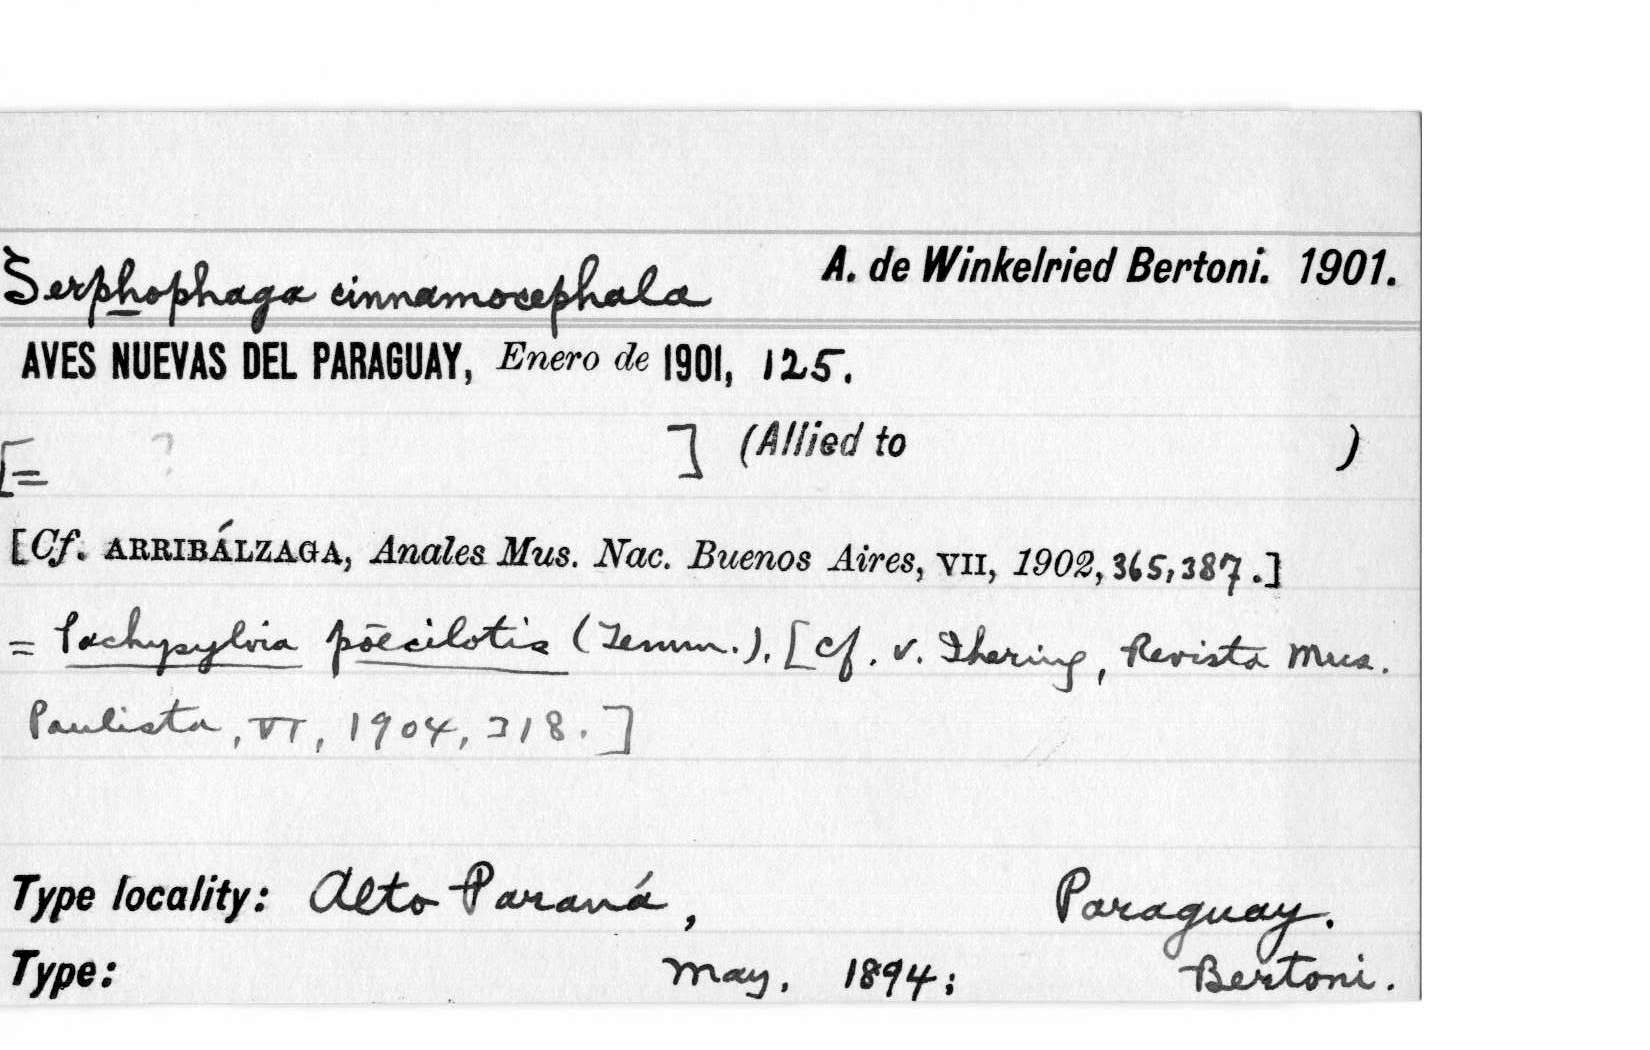 Serphophaga cinnamocephala A. de Winkelried Bertoni. 1901.
AVES NUEVAS DEL PARAGUAY, Enero de 1901, 125.
[= ? ] (Allied to )
[Cf. ARRIBÁLZAGA, Anales Mus. Nac. Buenos Aires, VII, 1902, 365, 387.]
= Pachysylvia pœcilotis (Temm.). [Cf. v. Ihering, Revista Mus.
Paulista, VI, 1904, 318.]
Type locality: Alto Paraná, Paraguay.
Type: May, 1894; Bertoni.